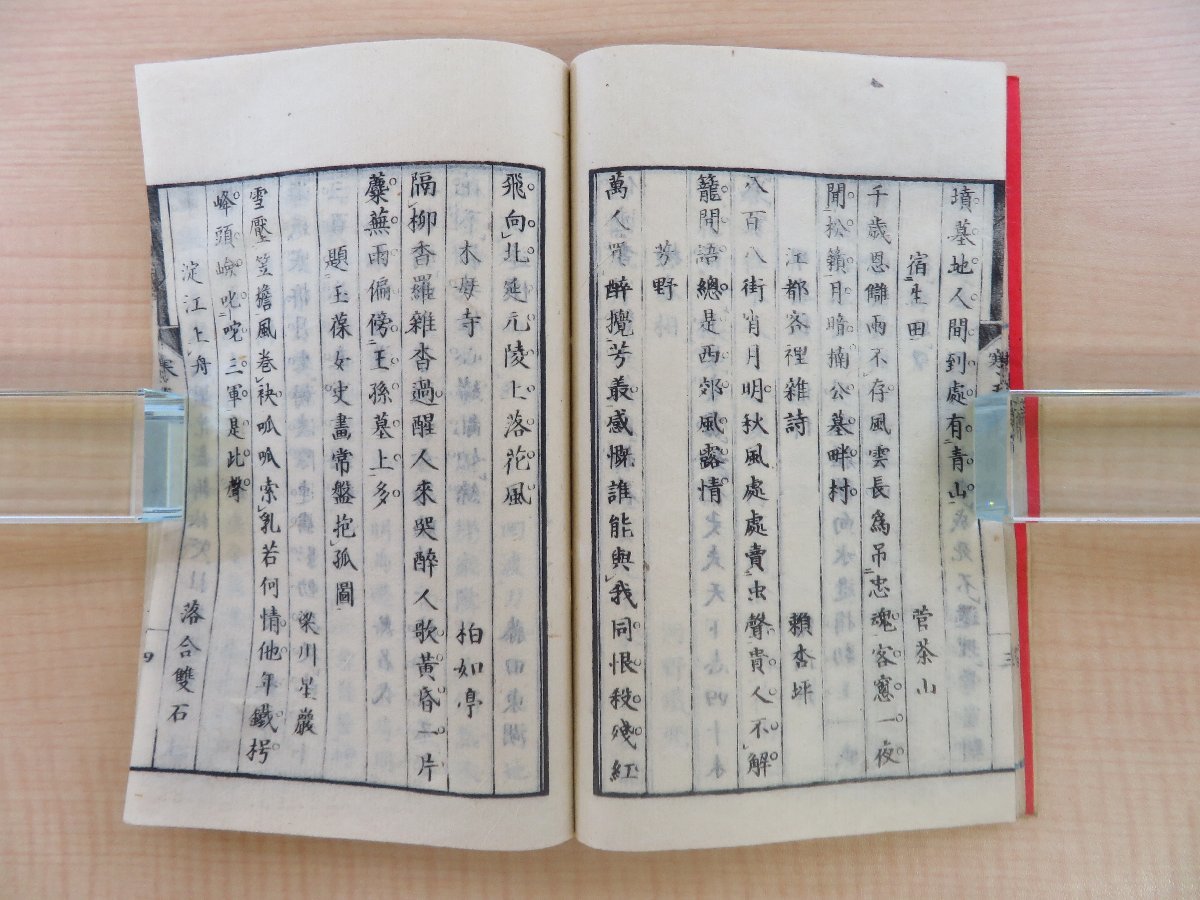 墳墓地人間到處有青山
宿生田 菅茶山
千歲恩讎雨不存風雲長爲弔忠魂客窓一夜
聞松籟月暗楠公墓畔村
江都客裡雜詩 賴杏坪
八百八街宵月明秋風處處賣虫聲貴人不解
籠間語總是西郊風露情
芳野
萬人買醉攪芳叢感慨誰能與我同恨殺殘紅
飛向北延元陵上落花風
木母寺 柏如亭
隔柳香羅雜沓過醒人來哭醉人歌黃昏一片
蘪蕪雨偏傍王孫墓上多
題王葆女史畫常盤抱孤圖
梁川星巖
雪壓笠檐風卷袂呱呱索乳若何情他年鐵枴
峰頭嶮叱咤三軍是此聲
淀江上舟 落合雙石